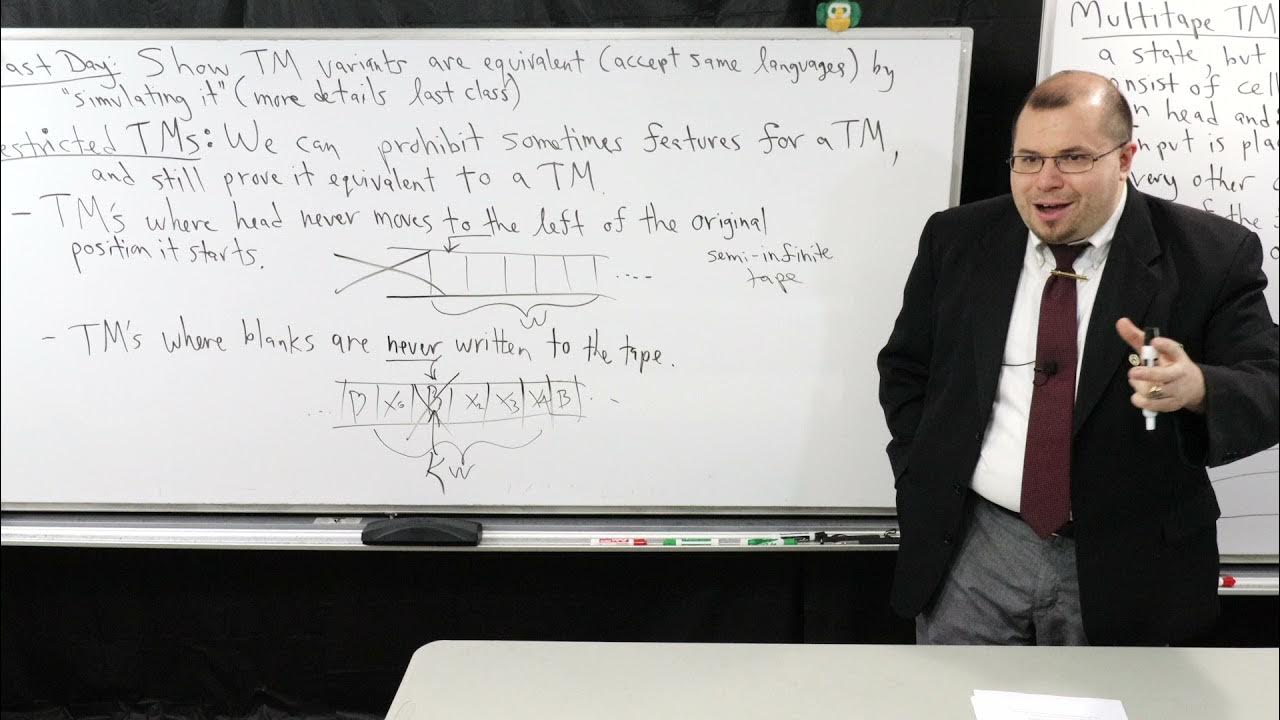 ast Day: Show TM variants are equivalent (accept same languages) by
"simulating it" (more details last class)
estricted TMs: We can prohibit sometimes features for a TM,
and still prove it equivalent to a TM.
- TM's where head never moves to the left of the original
position it starts.
semi-infinite
tape
....
W
- TM's where blanks are never written to the tape.
... B X₀ B X₂ X₃ X₄ B ...
W
Multitape TM
a state, but
onsist of cell
n head and
nput is pla
very other
of the